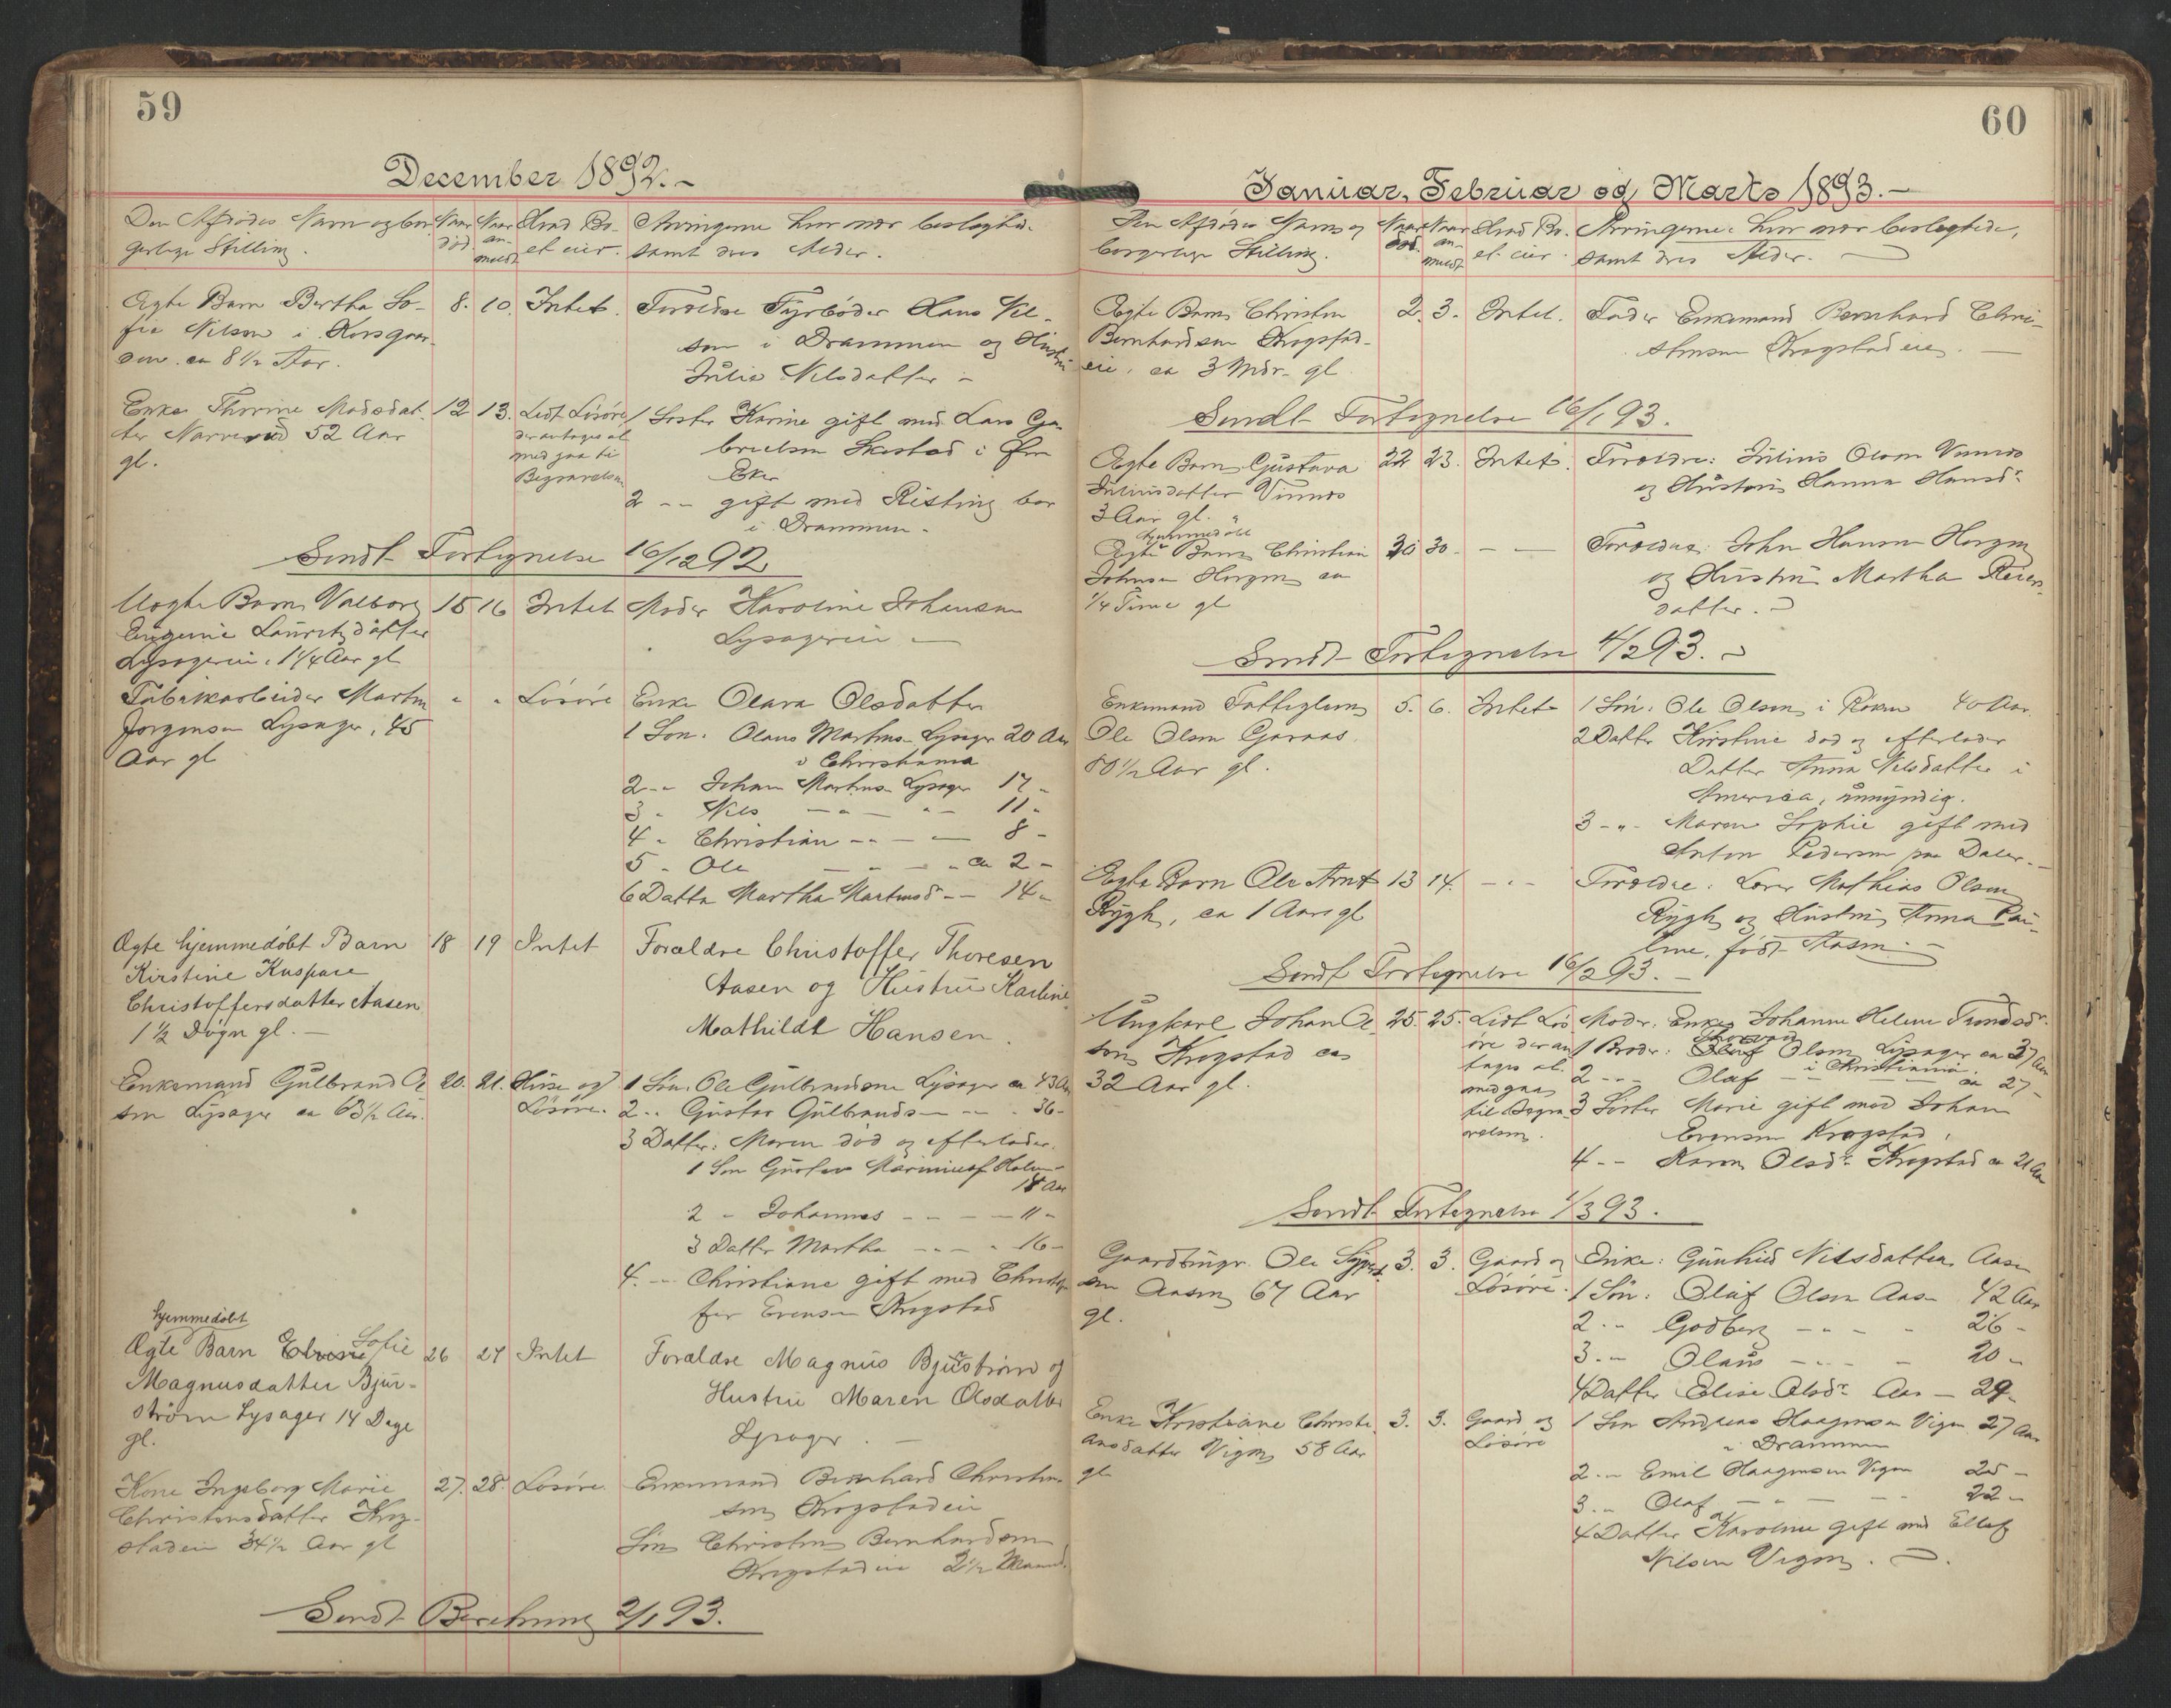 59
December 1892.-
Den Afdødes Navn og bor-
gerlige Stilling.
Naar død
Naar an-
meldt
Hvad Bo-
et eier.
Arvingerne hvor nær beslægtede
samt dres Alder.
Ægte Barn Bertha So-
fie Nilsen i Korsgaar-
den ca 8 1/2 Aar.
8. 10. Intet.
Forældre Fyrbøder Hans Nil-
sen i Drammen og Hustru
Julie Nilsdatter -
Enke Thorine Madsdat-
ter Narverud 52 Aar
gl.
12 13. Lidt Løsøre
der antages at
medgaa til
Begravelsen
1 Søster Karine gift med Lars Ga-
brielsen Skistad i Øvre
Eker
2 -- gift med Risting bor
i Drammen -
Sendt Fortegnelse 16/12 92
Uægte Barn Valborg
Eugenie Lauritzdatter
Lysagereie. 1 1/4 Aar gl
15 16 Intet
Moder Karoline Johansen
Lysagereie -
Fabrikarbeider Martin
Jørgensen Lysager, 45
Aar gl
" " Løsøre
Enke Olava Olsdatter
1 Søn. Olaus Martins. Lysager 20 Aar
i Christiania
2 -- Johan Martins. Lysager 17 -
3 - Nils -- -- 11 -
4 - Christian -- -- 8 -
5 - Ole -- -- ca 2 -
6 Datter Martha Martinsdr -- 14 -
Ægte hjemmedøbt Barn
Kirstine Kaspare
Christoffersdatter Aasen
1 1/2 Døgn gl. -
18 19 Intet
Forældre Christoffer Thoresen
Aasen og Hustru Karline
Mathilde Hansen.
Enkemand Gulbrand Ol-
sen Lysager ca 63 1/2 Aar.
20. 21. Huse og
Løsøre.
1 Søn. Ole Gulbrandsen Lysager ca 43 Aar
2 -- Gustav Gulbrands- -- - 36 -
3 Datter: Maren død og efterlader.
1 Søn Gustav Mariniusf Holm-
18 Aar
2 - Johannes -- -- 11 -
3 Datter Martha -- - 16 -
4. -- Christiane gift med Christof-
fer Evensen Krogstad
hjemmedøbt
Ægte Barn Elvine Sofie
Magnusdatter Bjur-
strøm Lysager 14 Dage
gl.
26 27 Intet
Forældre Magnus Bjurstrøm og
Hustru Maren Olsdatter
Lysager. -
Kone Ingeborg Marie
Christensdatter Krog-
stadeie 34 1/2 Aar gl
27. 28. Løsøre.
Enkemand Bernhard Christen-
sen Krogstadeie
Søn Christen Bernhardsen
Krogstadeie 2 1/2 Maaned.
Sendt Beretning 2/1 93.
60
Januar, Februar og Marts 1893.-
Den Afdødes Navn og
borgerlige Stilling.
Naar død.
Naar an-
meldt
Hvad Bo-
et eier.
Arvingerne hvor nær beslægtede,
samt dres Alder. -
Ægte Barn Christen
Bernhardsen Krogstad-
eie, ca 3 Mdr. gl
2. 3. Intet.
Fader Enkemand Bernhard Chri-
stensen Krogstadeie. -
Sendt Fortegnelse 16/1 93.
Ægte Barn Gustava
Juliusdatter Vinnæs
3 Aar gl.
22 23. Intet.
Forældre: Julius Olsen Vinnæs
og Hustru Hanna Hansdr
hjemmedøbt
Ægte Barn Christian
Johnsen Horgen ca
1/4 Time gl
30 30 - - -
Forældre: John Hansen Horgen
og Hustru Martha Reiers-
datter. -
Sendt Fortegnelse 4/2 93. -
Enkemand Fattiglem
Ole Olsen Garaas.
80 1/2 Aar gl.
5. 6. Intet
1 Søn: Ole Olsen i Røken 40 Aar
2 Datter Kirstine død og efterlader
Datter Anna Nilsdatter i
America, umyndig.
3 -"- Maren Sophie gift med
Anton Pedersen paa Daler. -
Ægte Barn Ole Arnt
Rygh, ca 1 Aar gl
13 14. - " -
Forældre: Lærer Mathias Olsen
Rygh og Hustru Anna Pau-
line, født Aasen. -
Sendt Fortegnelse 16/2 93. -
Ungkarl Johan Ol-
sen Krogstad ca
32 Aar gl.
25. 25. Lidt Løs-
øre der an-
tages at
medgaa
til Begra-
velsen.
Moder. Enke Johanne Helene Trondsdr.
Thorvald
1 Broder: Olaf Olsen Lysager ca 37 Aar
i Christiania.
2 -- Olaf -- -- ca 27 -
3 Søster Marie gift med Johan
Evensen Krogstad,
4 -- Karen Olsdr Krogstad ca 21 Aar
Sendt Fortegnelse 1/3 93.
Gaardbrugr. Ole
sen Aasen 67 Aar
gl.
3. 3. Gaard og
Løsøre.
Enke: Gunhild Nilsdatter Aasen
1 Søn: Oluf Olsen Aas- 42 Aar
2 -- Godberg -- - - 26 -
3 -- Olaus -- -- - 20 -
4 Datter Elise Olsdr Aas - 29 -
Enke Kristiane Christi-
ansdatter Vigen 58 Aar
gl
3. 3. Gaard og
Løsøre
1 Søn Andreas Haagensen Vigen 27 Aar
i Drammen
2 -- Emil Haagensen Vigen 25 -
3 -- Olaf -- -- 22 -
4 Datter Karoline gift med Ellef
Nilsen Vigen. -.